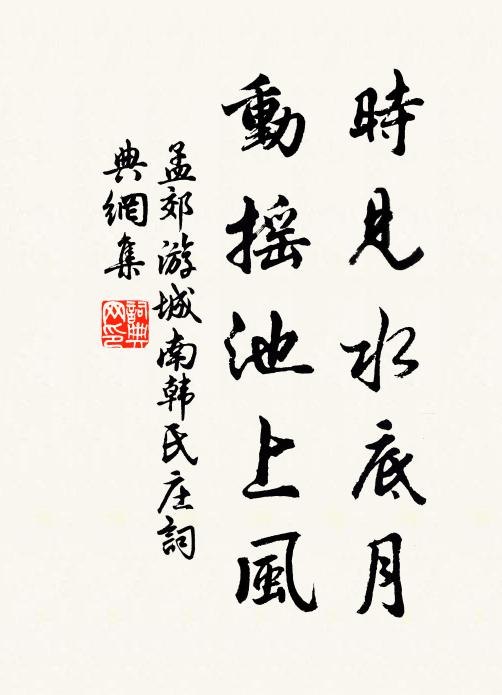 時見水底月
動摇池上風
孟郊游城南韩氏庄詞
典網集
詞典
网印